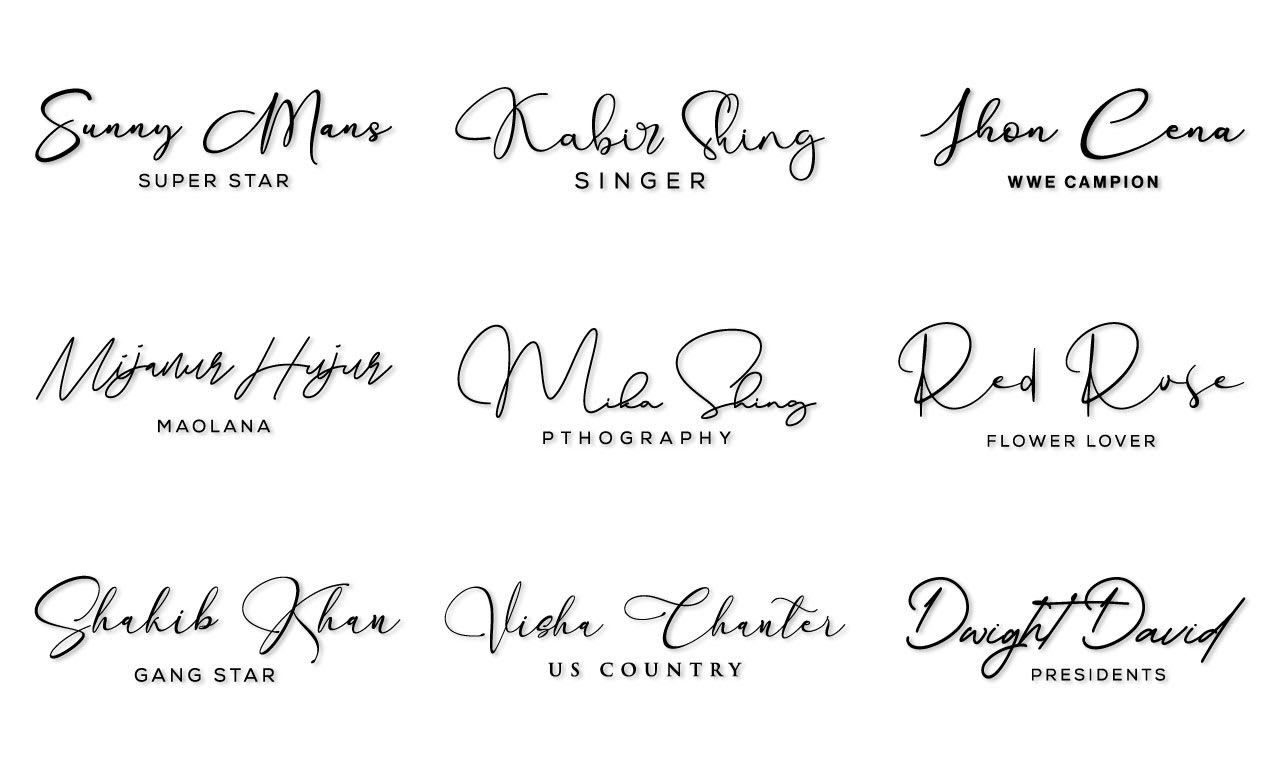 Sunny Mans
SUPER STAR
Kabir Shing
SINGER
Jhon Cena
WWE CAMPION
Mijanur Hujur
MAOLANA
Mika Shing
PTHOGRAPHY
Red Rose
FLOWER LOVER
Shakib Khan
GANG STAR
Visha Chanter
US COUNTRY
Dwight David
PRESIDENTS